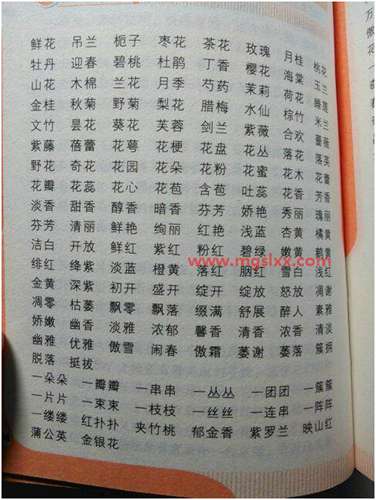 鲜花 吊兰 栀子 枣花 茶花 玫瑰 月桂 桃花
牡丹 迎春 碧桃 杜鹃 丁香 樱花 海棠 玉兰
山花 木棉 兰花 月季 芍药 茉莉 荷花 睡莲
金桂 秋菊 野菊 梨花 腊梅 水仙 棕竹 米兰
文竹 昙花 葵花 芙蓉 剑兰 紫薇 合欢 蔷薇
紫藤 蓓蕾 花萼 花梗 花盘 花丛 落花 落英
野花 奇花 花园 花朵 花粉 花蜜 花木 花蕾
花瓣 花蕊 花心 花苞 含苞 吐蕊 花香 芳香
淡香 甜香 醇香 暗香 芬芳 娇艳 秀丽 瑰丽
芬芳 清丽 鲜艳 绚丽 红艳 浅蓝 杏黄 橘黄
洁白 开放 鲜红 紫红 粉红 碧绿 嫩黄 鹅黄
绯红 绛紫 淡蓝 橙黄 落红 胭红 雪白 浅红
金黄 深紫 初开 盛开 绽开 绽放 怒放 凋谢
凋零 枯萎 飘零 飘落 缀满 舒展 醉人 素雅
娇嫩 幽香 淡雅 浓郁 馨香 清香 浓香 清淡
幽雅 优雅 傲雪 闹春 傲霜 萎谢 萎落 簇拥
脱落 挺拔
一朵朵 一瓣瓣 一串串 一丛丛 一团团 一簇簇
一片片 一束束 一枝枝 一丝丝 一连串 一阵阵
一缕缕 红扑扑 夹竹桃 郁金香 紫罗兰 映山红
蒲公英 金银花
www.mgslxx.com